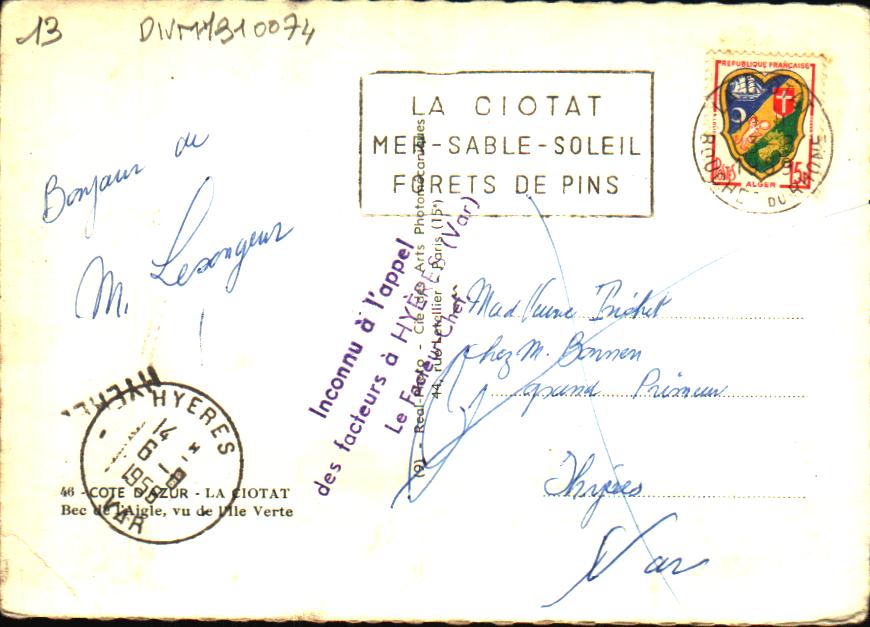 13
DIVMY310074
LA CIOTAT
MER-SABLE-SOLEIL
FORETS DE PINS
REPUBLIQUE FRANÇAISE
POSTES 15F
ALGER
BOUCHES DU RHONE
Bonjour de
M. Lesongeur
Inconnu à l'appel
des facteurs à HYÈRES (Var)
Le Facteur-Chef
(9) - Real-Photo - Cie des Arts Photomécaniques
44, rue Letellier - Paris (15e)
Mad Veuve Brichet
chez M. Bonnen
grand Primeur
Hyères
Var
HYERES
14 H
6 - 8
1959
VAR
46 - COTE D'AZUR - LA CIOTAT
Bec de l'Aigle, vu de l'Ile Verte